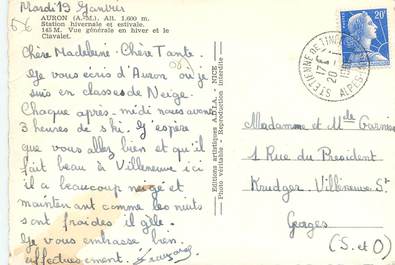 Mardi 19 Janvier
AURON (A.-M.). Alt. 1.600 m.
Station hivernale et estivale.
145 M. Vue générale en hiver et le
Clavalet.
Chère Madeleine. Chère Tante.
Je vous écris d'Auron où je
suis en classes de Neige.
Chaque après-midi nous avons
3 heures de ski. J'espère
que vous allez bien et qu'il
fait beau à Villeneuve ici
il a beaucoup neigé et
maintenant comme les nuits
sont froides il gèle.
Je vous embrasse bien
affectueusement.
Editions artistiques A.D.I.A. NICE
Photo véritable - Reproduction interdite
20F
ST ETIENNE DE TINEE
ALPES
Madame et Mlle
1 Rue du President
Krudger Villeneuve St
Georges
(S. et O)